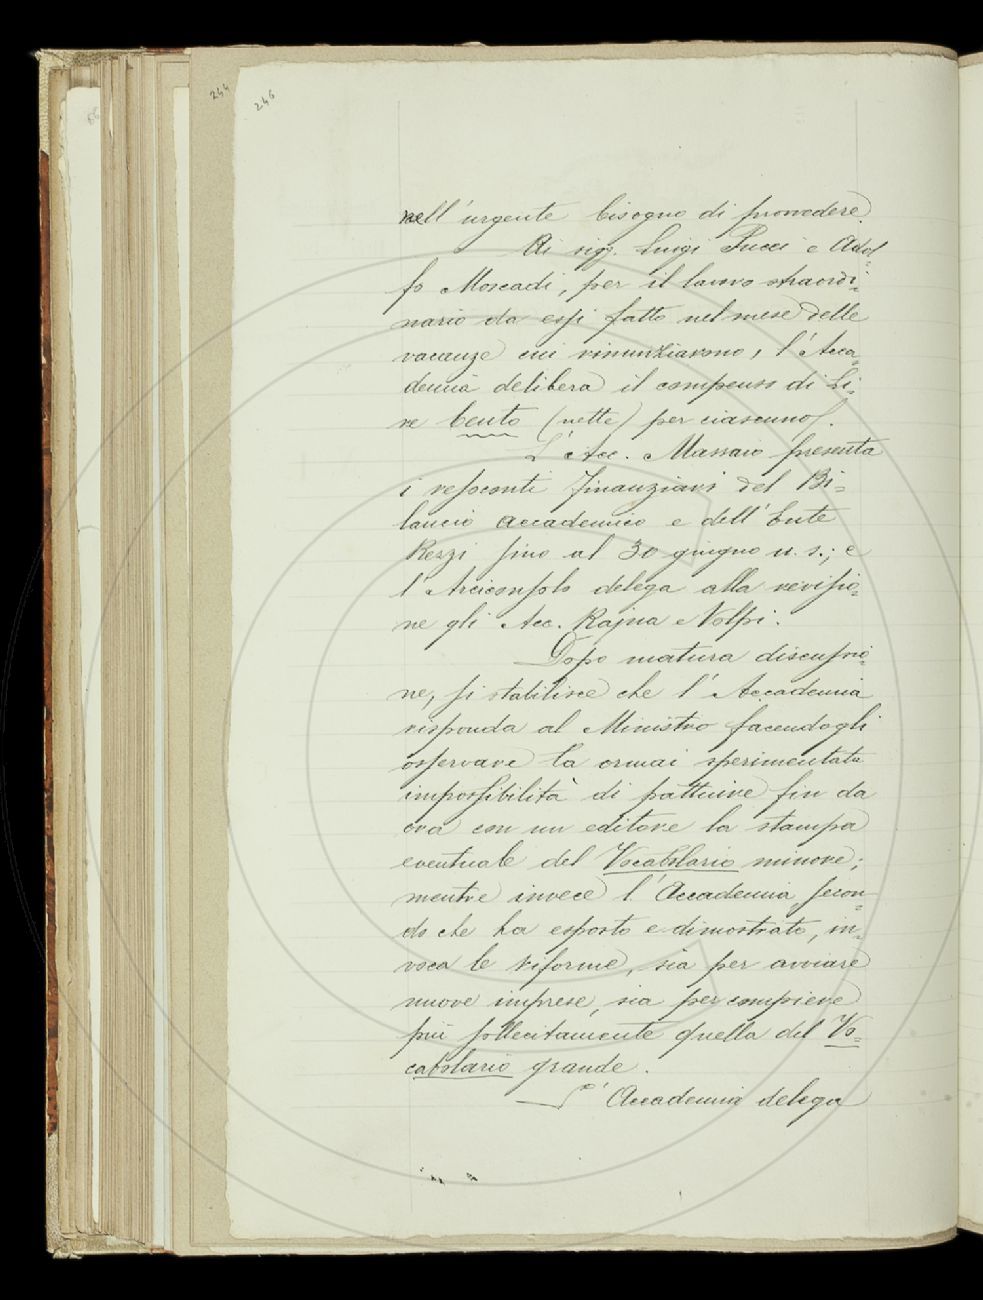 244
246
nell'urgente bisogno di provvedere.
Ai sigg. Luigi Pucci e Adol=
fo Moscadi, per il lavoro straordi=
nario da essi fatto nel mese delle
vacanze cui rinunziarono, l'Acca=
demia delibera il compenso di Li=
re Cento (nette) per ciascuno.
L'Acc. Massaio presenta
i resoconti finanziari del Bi=
lancio accademico e dell'Ente
Rezzi fino al 30 giugno u. s.; e
l'Arciconsolo delega alla revisio=
ne gli Acc. Rajna e Volpi.
Dopo matura discussio=
ne, si stabilisce che l'Accademia
risponda al Ministro facendogli
osservare la ormai sperimentata
impossibilità di pattuire fin da
ora con un editore la stampa
eventuale del Vocabolario minore;
mentre invece l'Accademia, secon=
do che ha esposto e dimostrato, in=
voca le riforme, sia per avviare
nuove imprese, sia per compiere
più sollecitamente quella del Vo=
cabolario grande.
L'Accademia delega